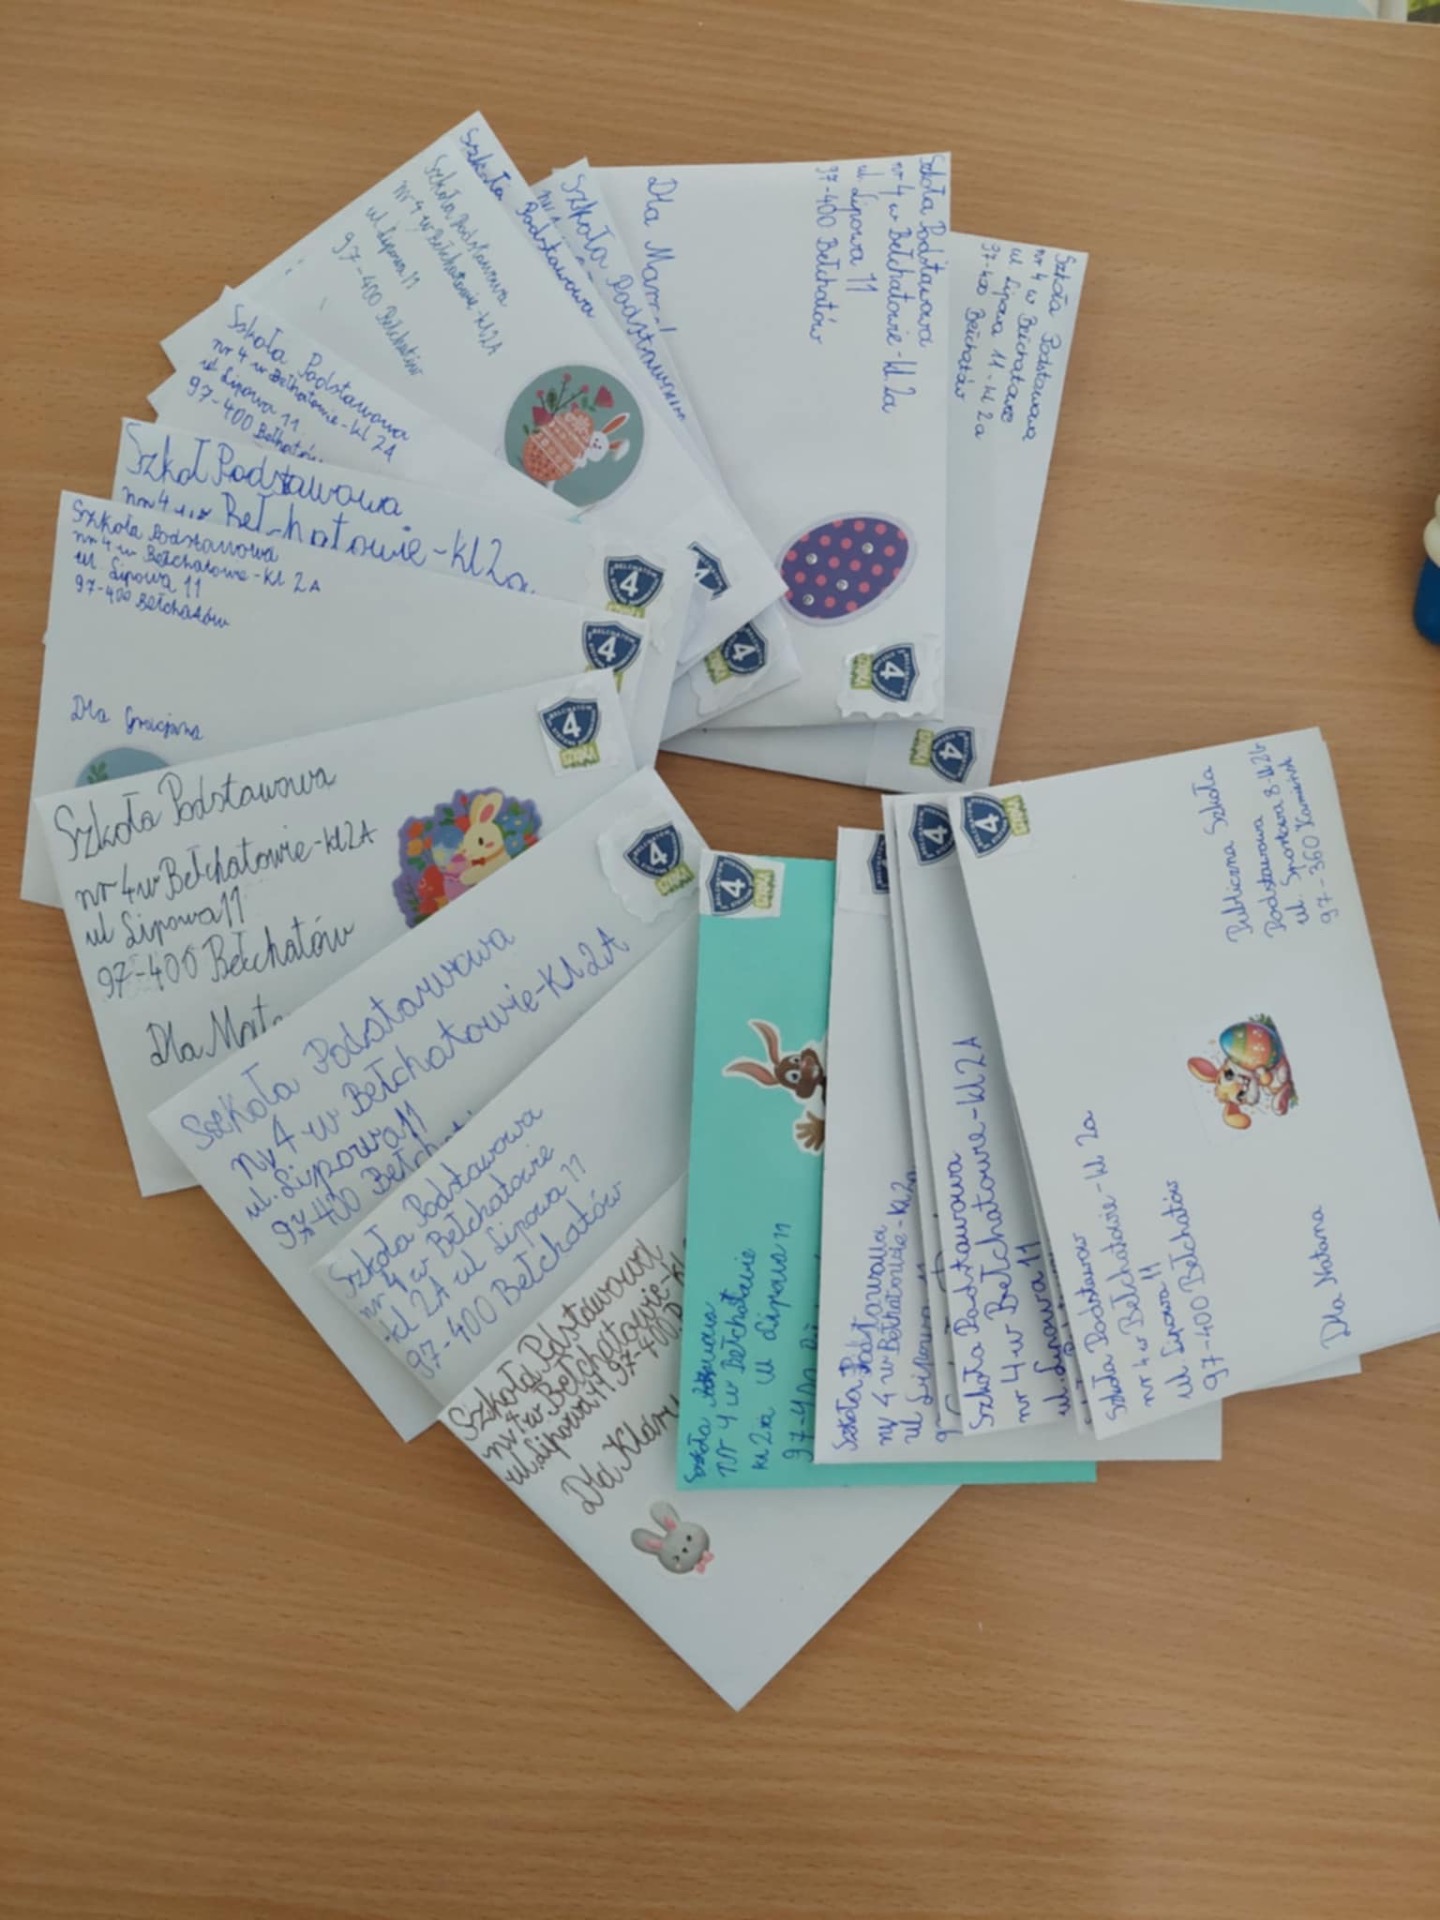 Szkoła Podstawowa
nr 4 w Bełchatowie-kl 2a
ul. Lipowa 11
97-400 Bełchatów
Dla
Szkoła Podstawowa
nr 4 w Bełchatowie
ul Lipowa 11-kl 2a
97-400 Bełchatów
4
4
Szkoła Podstawowa
Szkoła
Podstawowa
Szkoła Podstawowa
nr 4 w Bełchatowie-kl 2A
ul Lipowa 11
97-400 Bełchatów
4
Szkoła Podstawowa
nr 4 w Bełchatowie-kl 2A
ul Lipowa 11
97-400
4
Szkoł Podstawowa
nr 4 w Bełchatowie-kl 2a
4
Szkoła Podstawowa
nr 4 w Bełchatowie-kl 2A
ul Lipowa 11
97-400 Bełchatów
Dla Gracjana
4
Szkoła Podstawowa
nr 4 w Bełchatowie-kl 2A
ul Lipowa 11
97-400 Bełchatów
Dla
4
Szkoła Podstawowa
nr 4 w Bełchatowie-kl 2A
ul. Lipowa 11
97-400
4
Szkoła Podstawowa
nr 4 w Bełchatowie
-kl 2A ul Lipowa 11
97-400 Bełchatów
Szkoła Podstawowa
nr 4 w Bełchatowie-kl
ul. Lipowa 11 97-400
Dla
4
Szkoła
nr 4 w Bełchatowie
kl 2a ul Lipowa 11
97-400
Szkoła Podstawowa
nr 4 w Bełchatowie-kl 2a
ul
4
Szkoła Podstawowa
nr 4 w Bełchatowie-kl 2A
ul. Lipowa 11
4
Publiczna Szkoła
Podstawowa 8-kl 2b
ul. Sportowa
97-360 Kamieńsk
Szkoła Podstaw
nr 4 w Bełchatowie-kl 2a
ul Lipowa 11
97-400 Bełchatów
Dla Natana